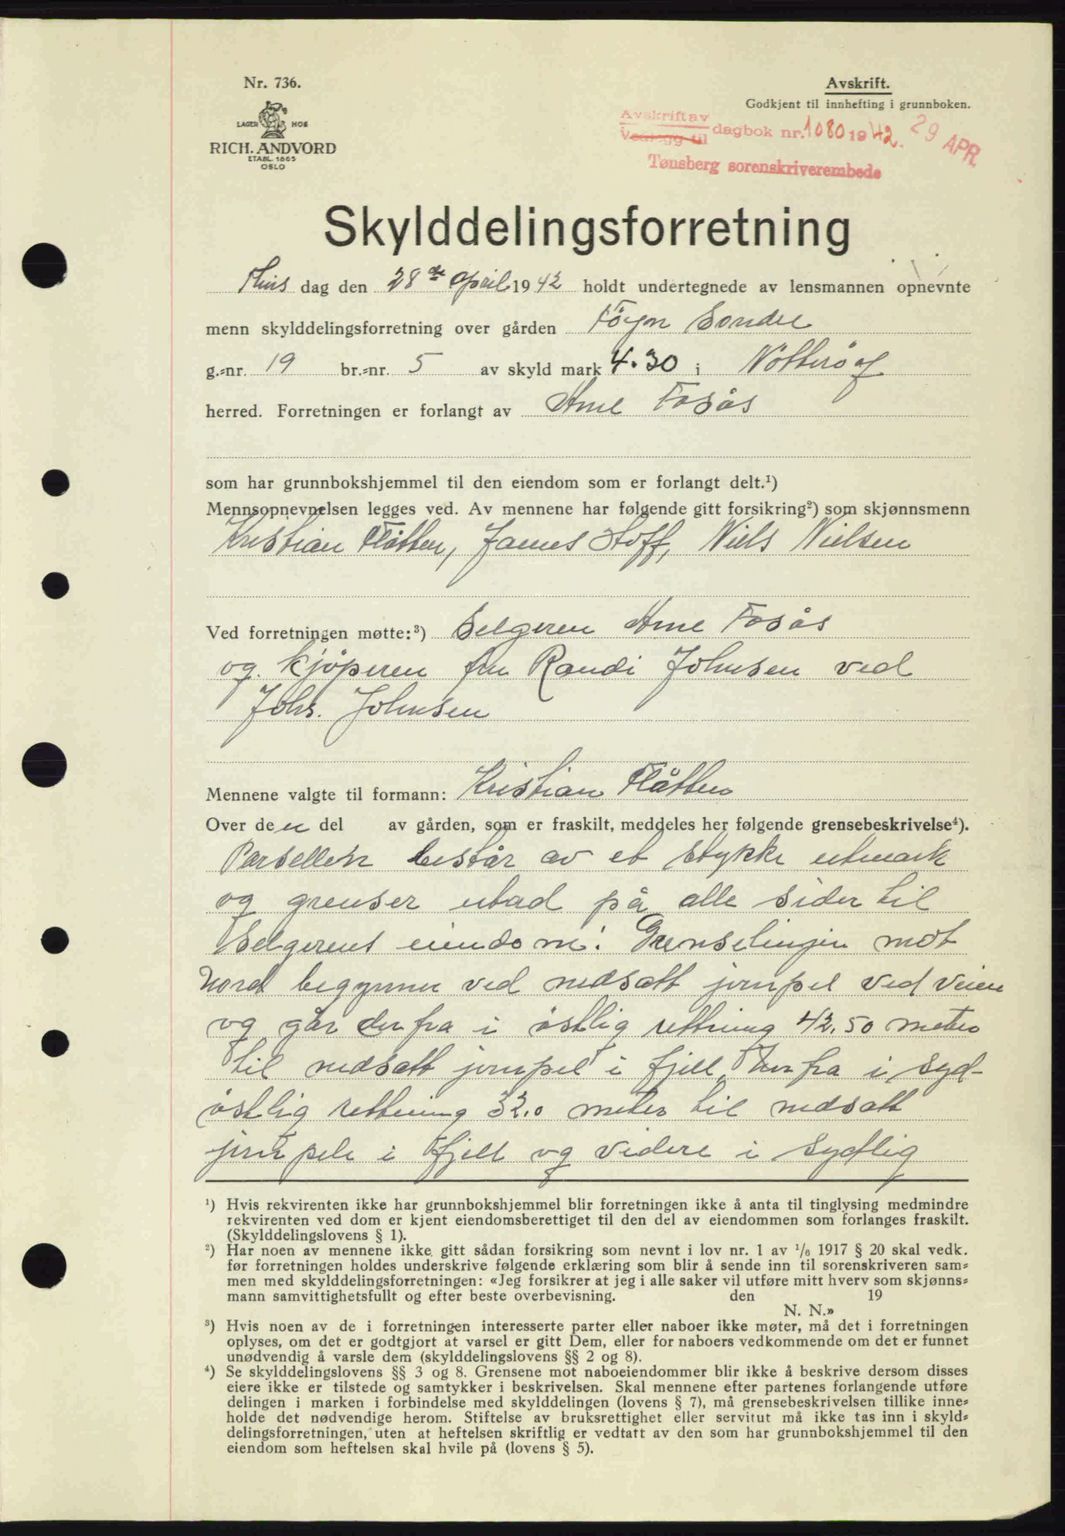 Nr. 736.
LAGER HOS
RICH. ANDVORD
ETABL. 1865
OSLO
Avskrift.
Godkjent til innhefting i grunnboken.
Avskrift av
Vedlegg til dagbok nr. 1080 1942. 29 APR.
Tønsberg sorenskriverembede
Skylddelingsforretning
dag den 28de April 1942 holdt undertegnede av lensmannen opnevnte
menn skylddelingsforretning over gården Föyn Söndre
g.-nr. 19 br.-nr. 5 av skyld mark 4.30 i Nötteröy
herred. Forretningen er forlangt av Arne Fosås
som har grunnbokshjemmel til den eiendom som er forlangt delt.¹)
Mennsopnevnelsen legges ved. Av mennene har følgende gitt forsikring²) som skjønnsmenn
Kristian Flåtten, James Hoff, Niels Nielsen
Ved forretningen møtte:³) Selgeren Arne Fosås
og kjöperen fru Randi Johnsen ved
Johs. Johnsen
Mennene valgte til formann: Kristian Flåtten
Over den del av gården, som er fraskilt, meddeles her følgende grensebeskrivelse⁴).
Parsellen består av et stykke utmark
og grenser utad på alle sider til
Selgerens eiendom: Grenselinjen mot
nord begynner ved nedsatt jernpel ved veien
og går derfra i östlig retning 42.50 meter
til nedsatt jernpel i fjell, derfra i syd-
östlig retning 32.0 meter til nedsatt
jernpele i fjell og videre i sydlig
¹) Hvis rekvirenten ikke har grunnbokshjemmel blir forretningen ikke å anta til tinglysing medmindre
rekvirenten ved dom er kjent eiendomsberettiget til den del av eiendommen som forlanges fraskilt.
(Skylddelingslovens § 1).
²) Har noen av mennene ikke gitt sådan forsikring som nevnt i lov nr. 1 av ¹/₆ 1917 § 20 skal vedk.
før forretningen holdes underskrive følgende erklæring som blir å sende inn til sorenskriveren sam-
men med skylddelingsforretningen: «Jeg forsikrer at jeg i alle saker vil utføre mitt hverv som skjønns-
mann samvittighetsfullt og efter beste overbevisning. den 19
N. N.»
³) Hvis noen av de i forretningen interesserte parter eller naboer ikke møter, må det i forretningen
oplyses, om det er godtgjort at varsel er gitt Dem, eller for naboers vedkommende om det er funnet
unødvendig å varsle dem (skylddelingslovens §§ 2 og 8).
⁴) Se skylddelingslovens §§ 3 og 8. Grensene mot naboeiendommer blir ikke å beskrive dersom disses
eiere ikke er tilstede og samtykker i beskrivelsen. Skal mennene efter partenes forlangende utføre
delingen i marken i forbindelse med skylddelingen (lovens § 7), må grensebeskrivelsen tillike inne-
holde det nødvendige herom. Stiftelse av bruksrettighet eller servitut må ikke tas inn i skyld-
delingsforretningen, uten at heftelsen skriftlig er vedtatt av den som har grunnbokshjemmel til den
eiendom som heftelsen skal hvile på (lovens § 5).